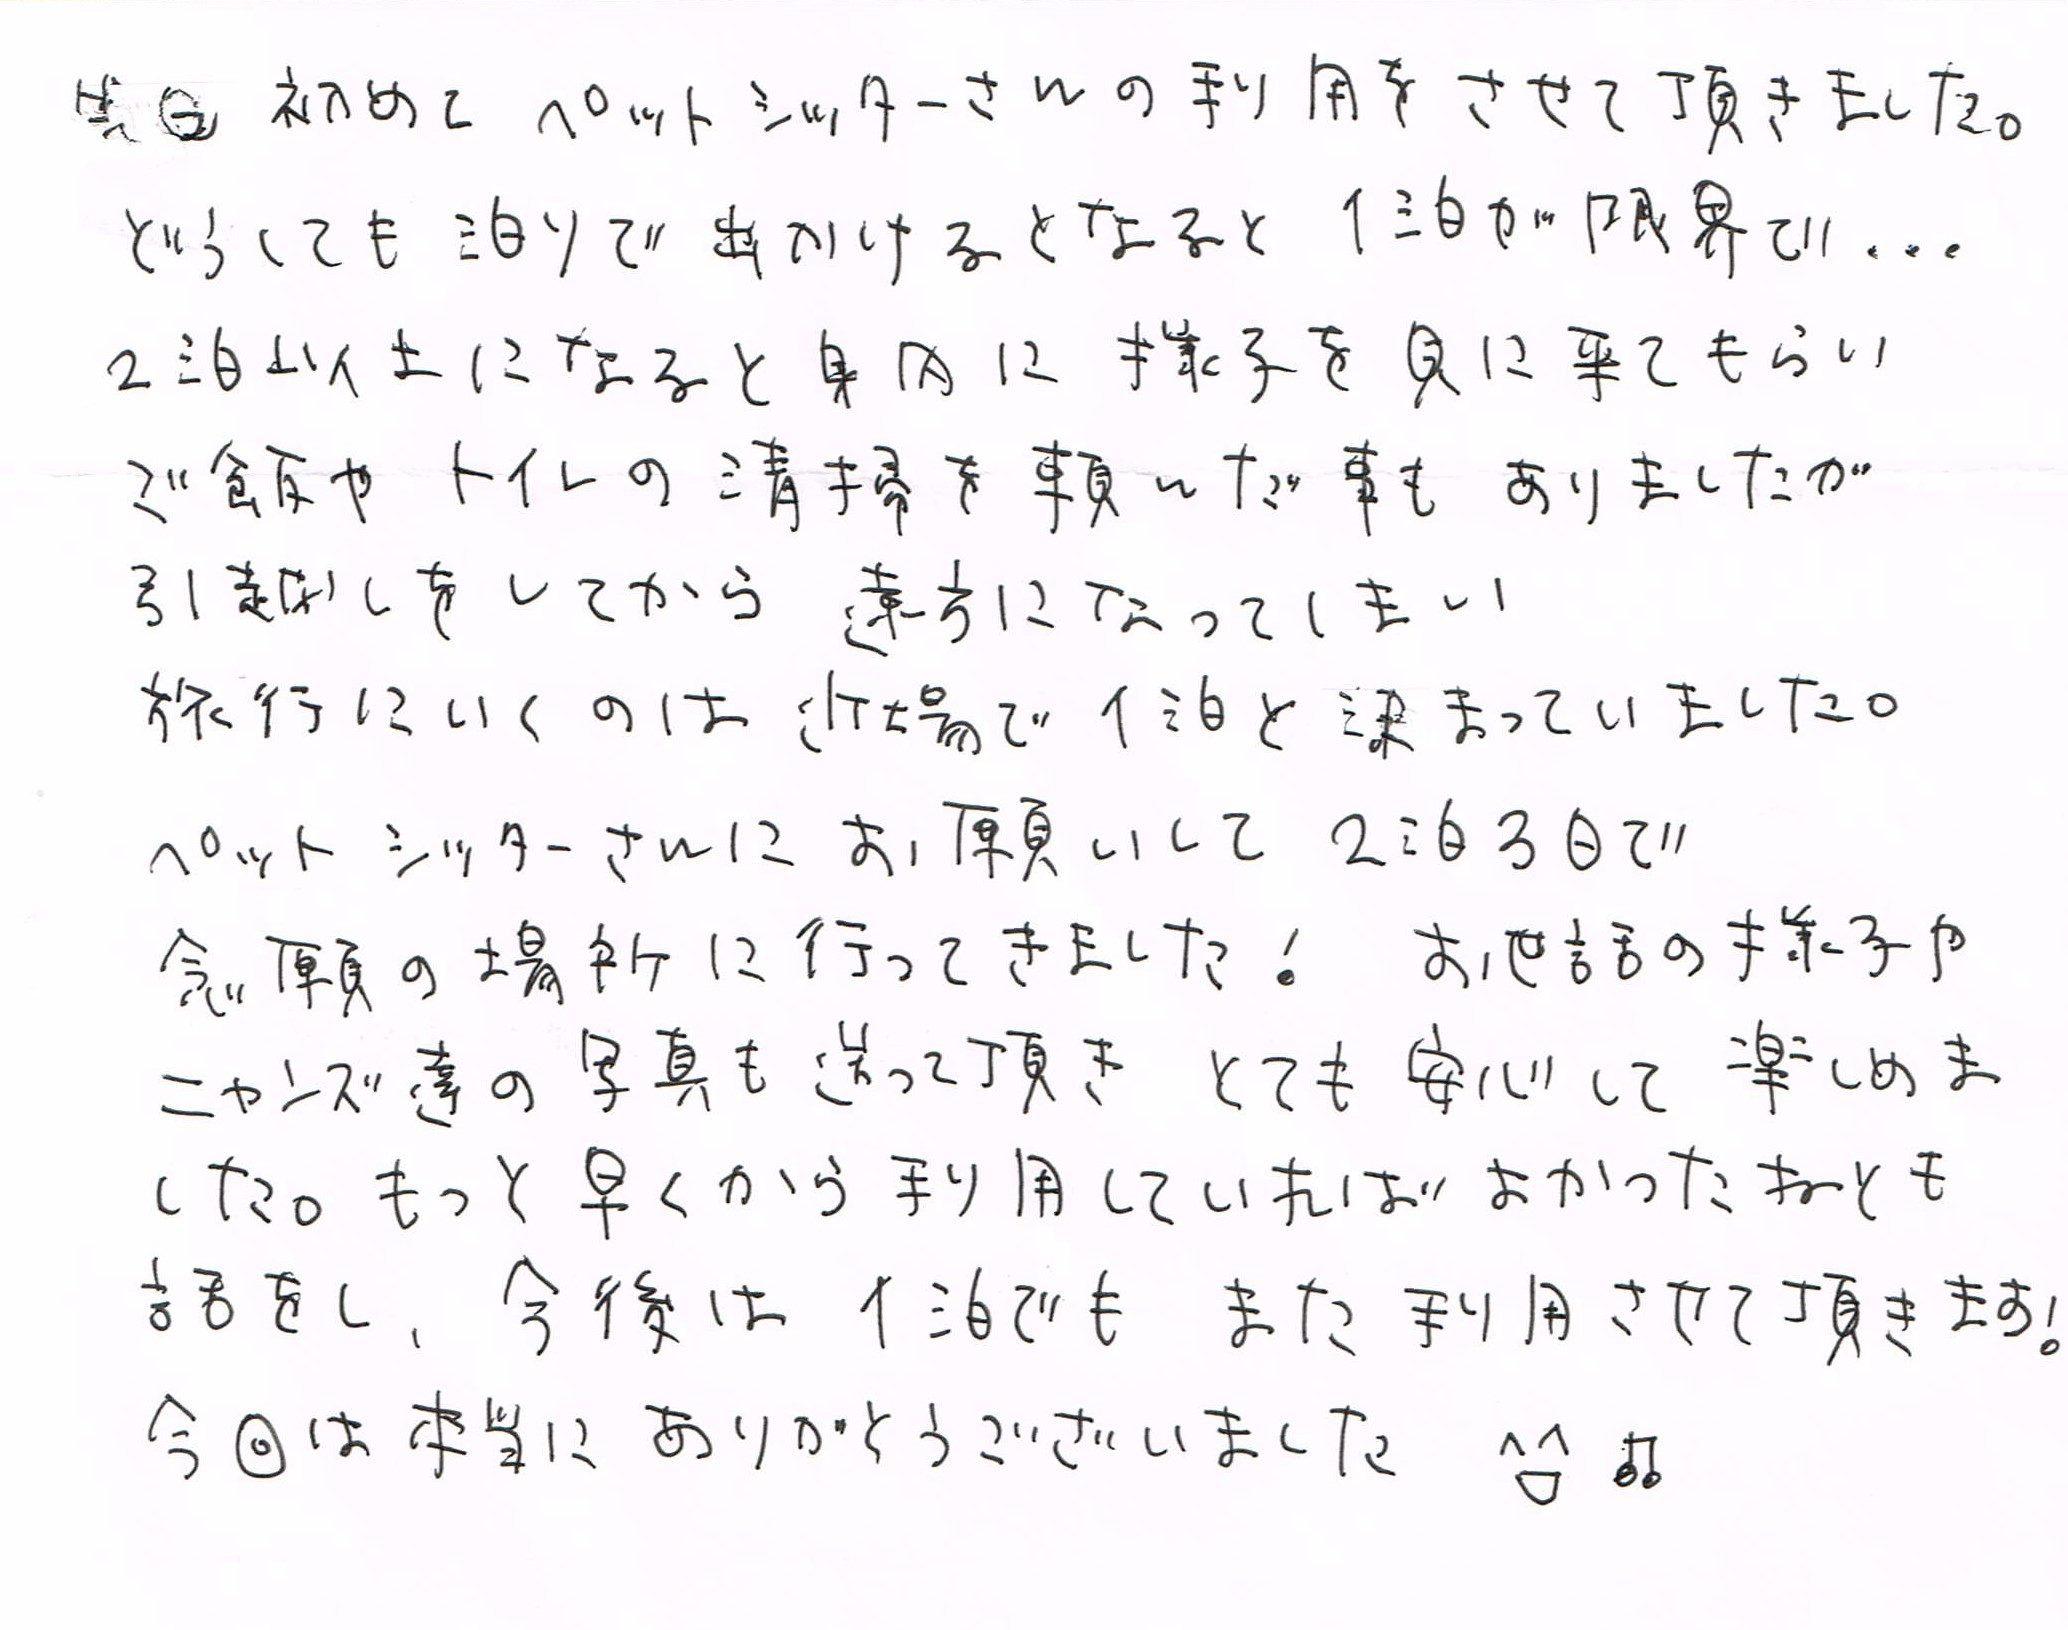 初めて ペットシッターさんの利用をさせて頂きました。
どうしても泊りで出かけるとなると 1泊が限界で...
2泊以上になると身内に様子を見に来てもらい
ご飯やトイレの清掃を頼んだ事もありましたが
引越しをしてから 遠方になってしまい
旅行にいくのは近場で1泊と決まっていました。
ペットシッターさんにお願いして 2泊3日で
念願の場所に行ってきました! お世話の様子や
ニャンズ達の写真も送って頂き とても安心して楽しめま
した。もっと早くから利用していればよかったねとも
話をし、今後は1泊でも また利用させて頂きます!
今回は本当にありがとうございました ^▽^ ♫